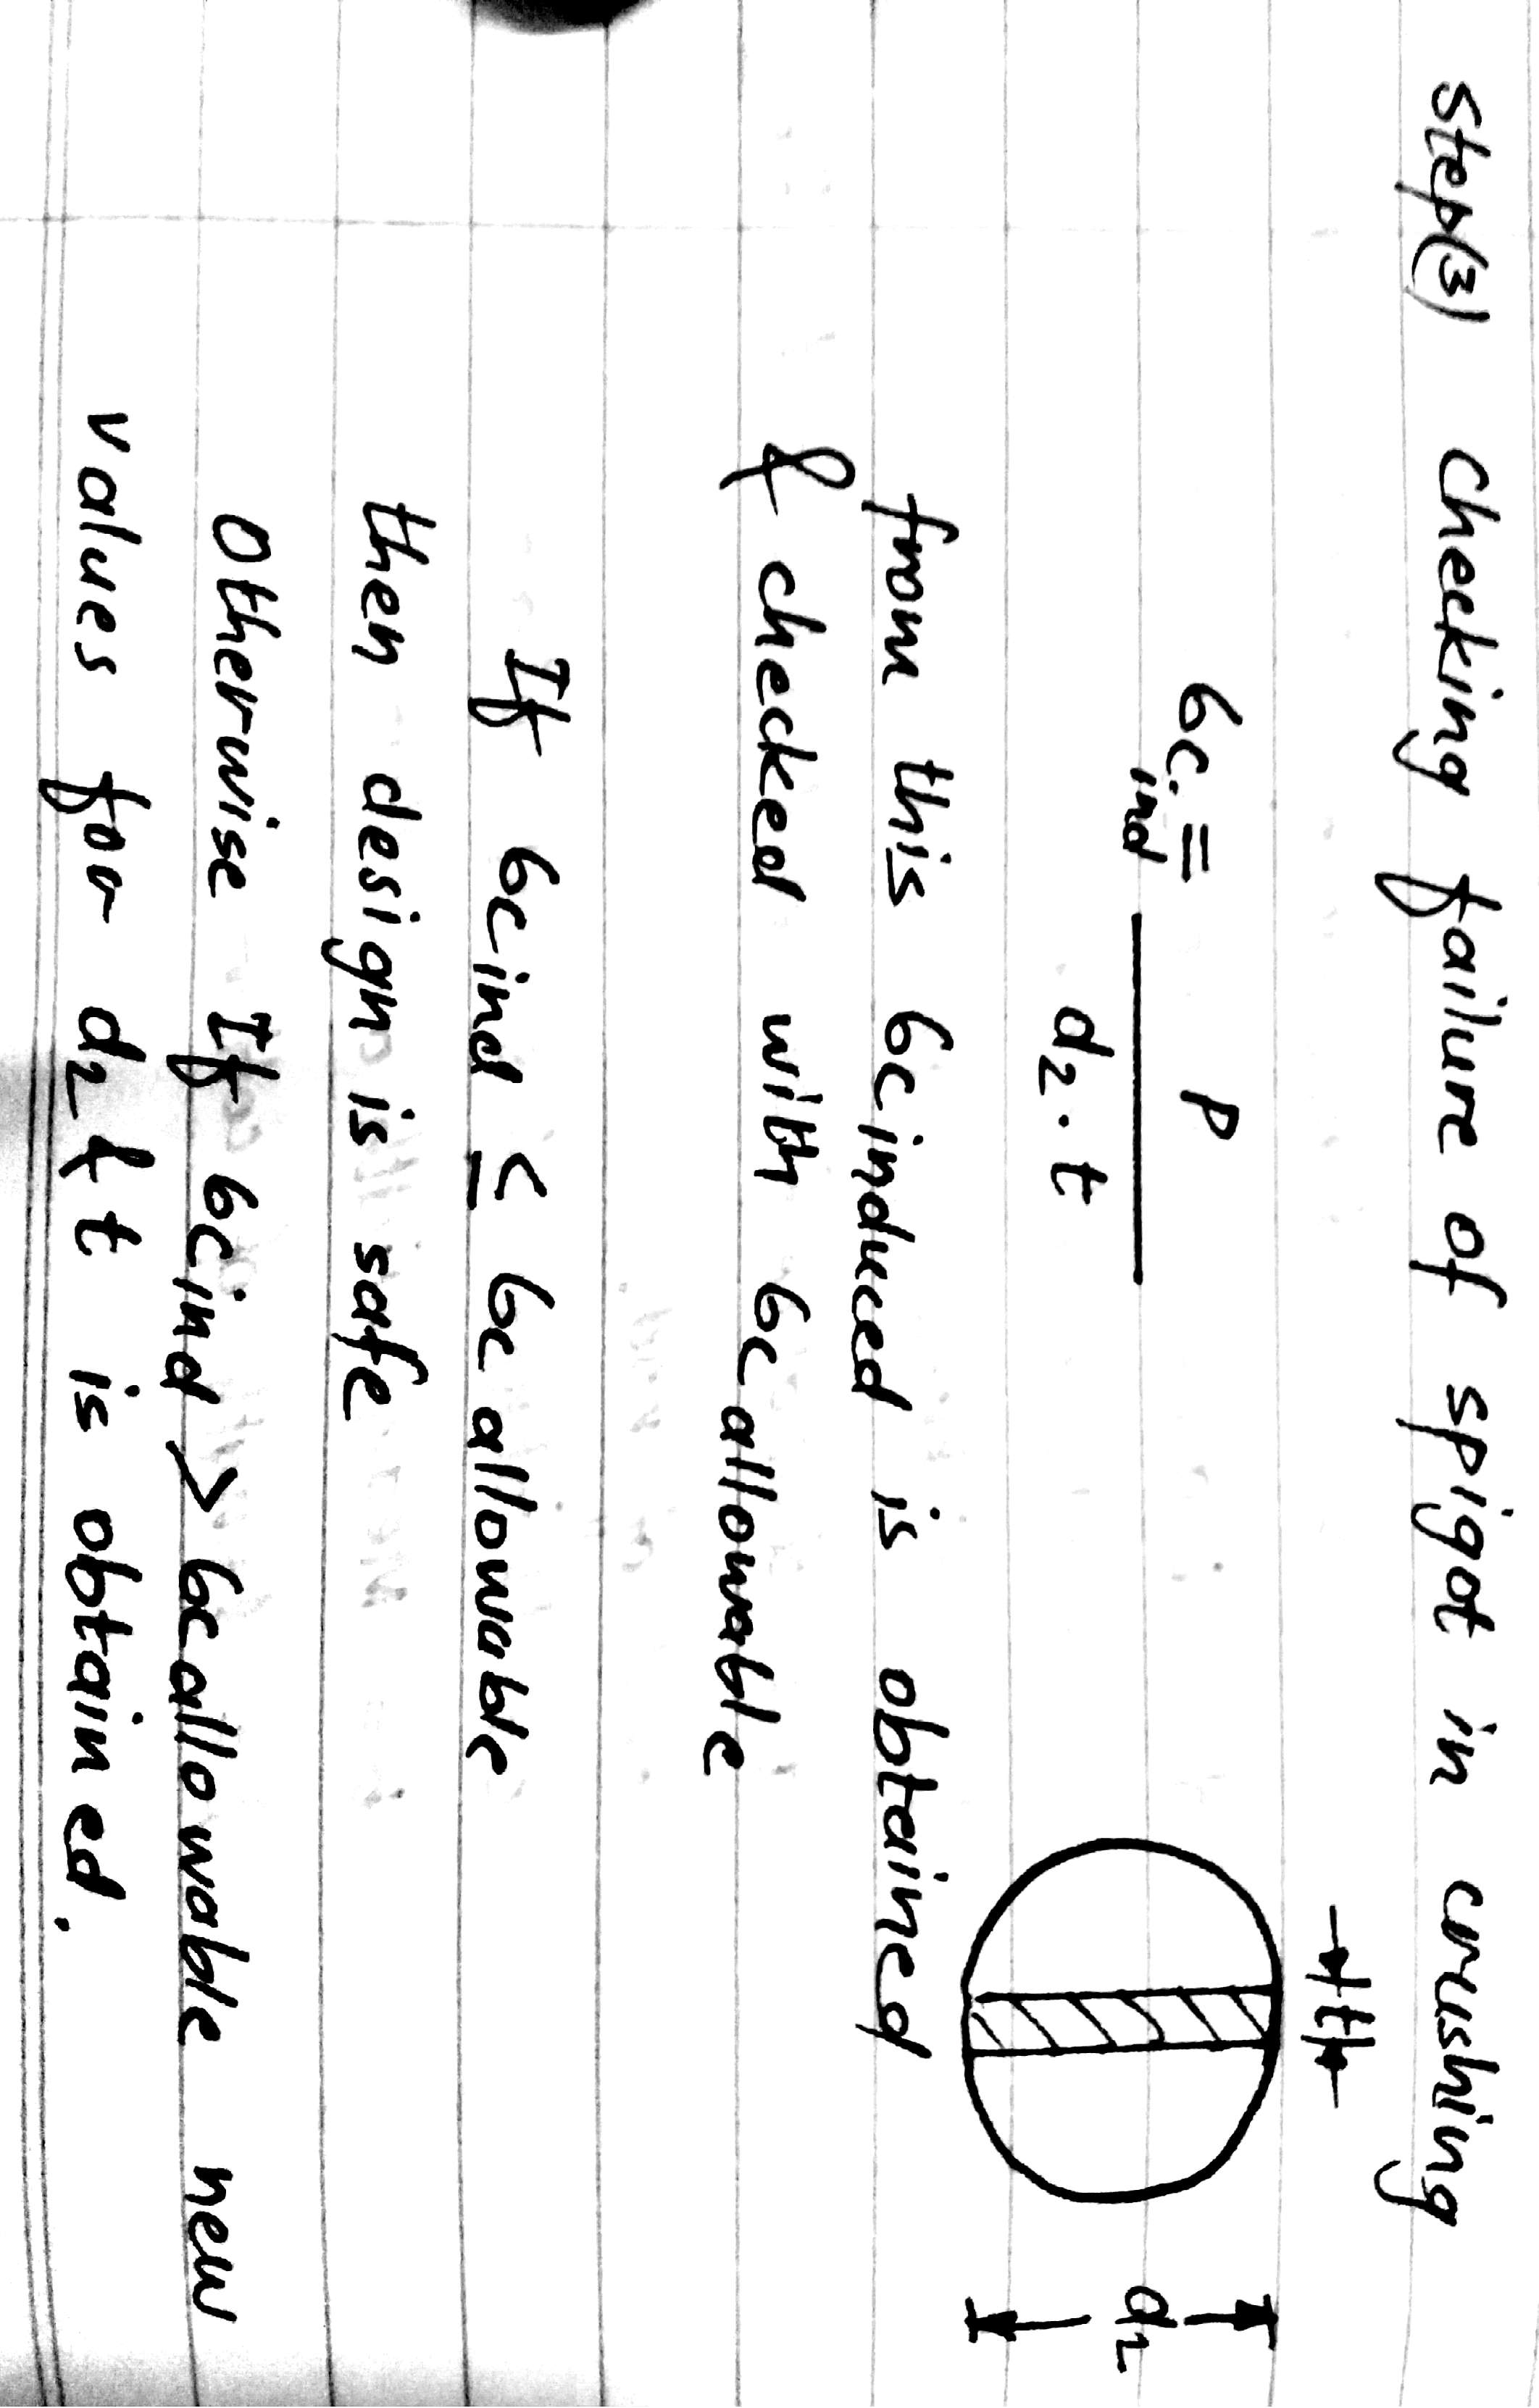 Step(3) Checking failure of spigot in crushing
6c ind = P / d2 . t
t
d2
from this 6c induced is obtained
& checked with 6c allowable
If 6c ind ≤ 6c allowable
then design is safe
Otherwise If 6c ind > 6c allowable new
values for d2 & t is obtained.